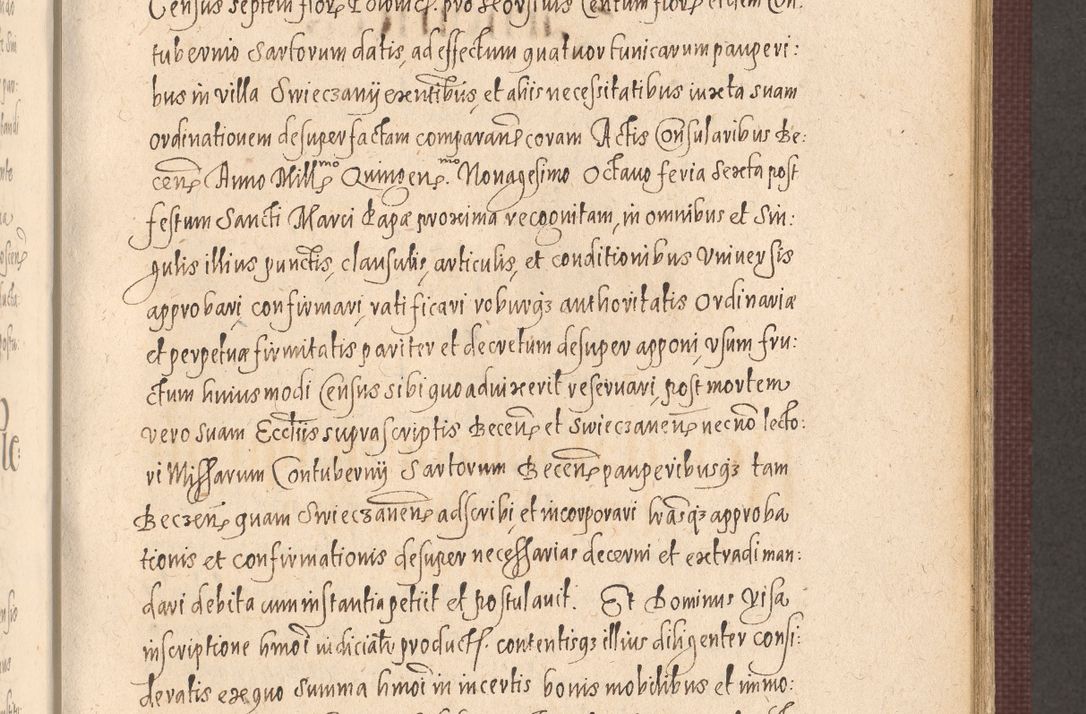 Census septem flor
tubernio Sartorum datis, ad effectum quatuor tunicarum pauperi:
bus in villa Swieczanÿ exentibus, et aliis necessitatibus iuxta suam
ordinationem desuper factam comparan coram Actis Consularibus Be:
cen Anno Mill^mo Quingen^mo. Nonagesimo Octauo feria Sexta post
festum Sancti Marci Papæ proxima recognitam, in omnibus et Sin:
gulis illius punctis, clausulis, articulis, et conditionibus Vniuersis
approbari, confirmari, ratificari roburq3 authoritatis Ordinariæ
et perpetuæ firmitatis pariter et decretum desuper apponi vsum fru:
ctum huiusmodi Census sibi quo aduixerit reseruari, post mortem
vero suam Eccliis suprascriptis Becen et Swieczanen necno lecto:
ri Missarum Contubernÿ Sartorum Becen pauperibusq3 tam
Beczen quam Swieczanen adscribi, et incorporari lrasq3 approba
tionis et confirmationis desuper necessarias decerni et extradi man:
dari debita cum instantia petiit et postulauit. Et Dominus visa
inscriptione hmoi iudicialr product. contentisq3 illius diligenter consi:
deratis ex quo Summa hmoi in incertis bonis mobilibus et immo: